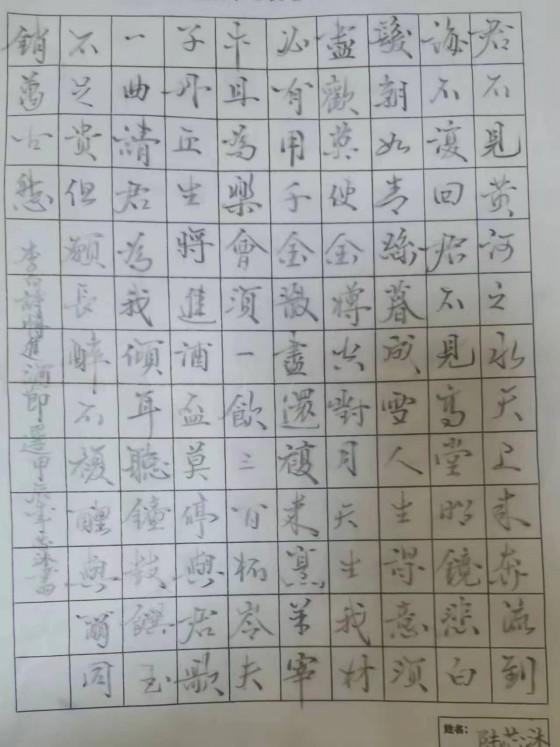 君不見黄河之水天上来奔流到
海不復回君不見高堂明鏡悲白
髮朝如青絲暮成雪人生得意須
盡歡莫使金樽空對月天生我材
必有用千金散盡還復来烹羊宰
牛且為樂會須一飲三百杯岑夫
子丹丘生將進酒盃莫停與君歌
一曲請君為我傾耳聽鐘鼓饌玉
不足貴但願長醉不復醒與爾同
銷萬古愁
李白詩將進酒節選甲辰年芯沐書
姓名：陆芯沐